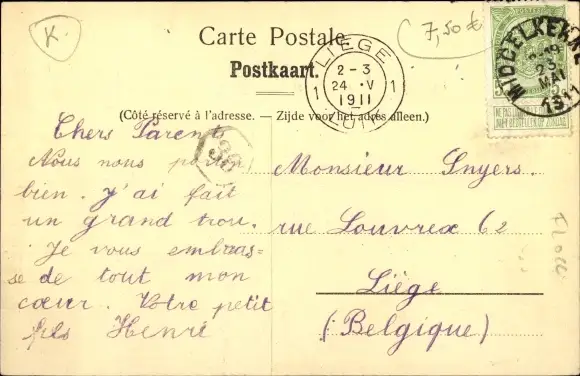 K.
Carte Postale
Postkaart.
7,50 €
LIÈGE
2-3
1 24 V 1
1911
MIDDELKERKE
23
MAI
1911
(Côté réservé à l'adresse. — Zijde voor het adres alleen.)
Chers Parents
Nous nous portons
bien. J'ai fait
un grand trou.
Je vous embras=
se de tout mon
cœur. Votre petit
fils Henri
Monsieur Snyers.
rue Louvrex 62
Liège
(Belgique)